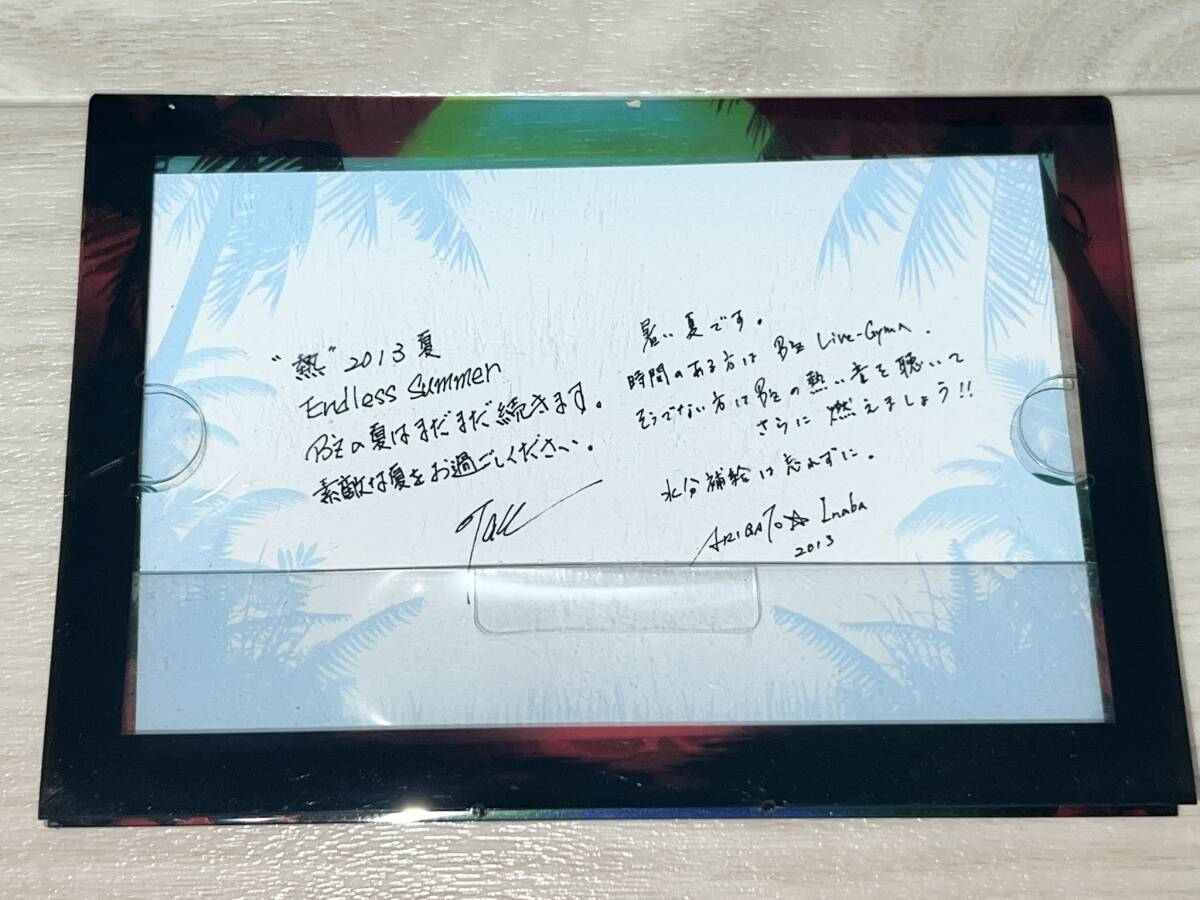 "熱" 2013 夏
Endless Summer
B'zの夏はまだまだ続きます。
素敵な夏をお過ごしください。
Tak
暑い夏です。
時間のある方は B'z Live-Gymへ、
そうでない方は B'zの熱い音を聴いて
さらに 燃えましょう!!
水分補給は忘れずに。
ARIGATO☆ Inaba
2013